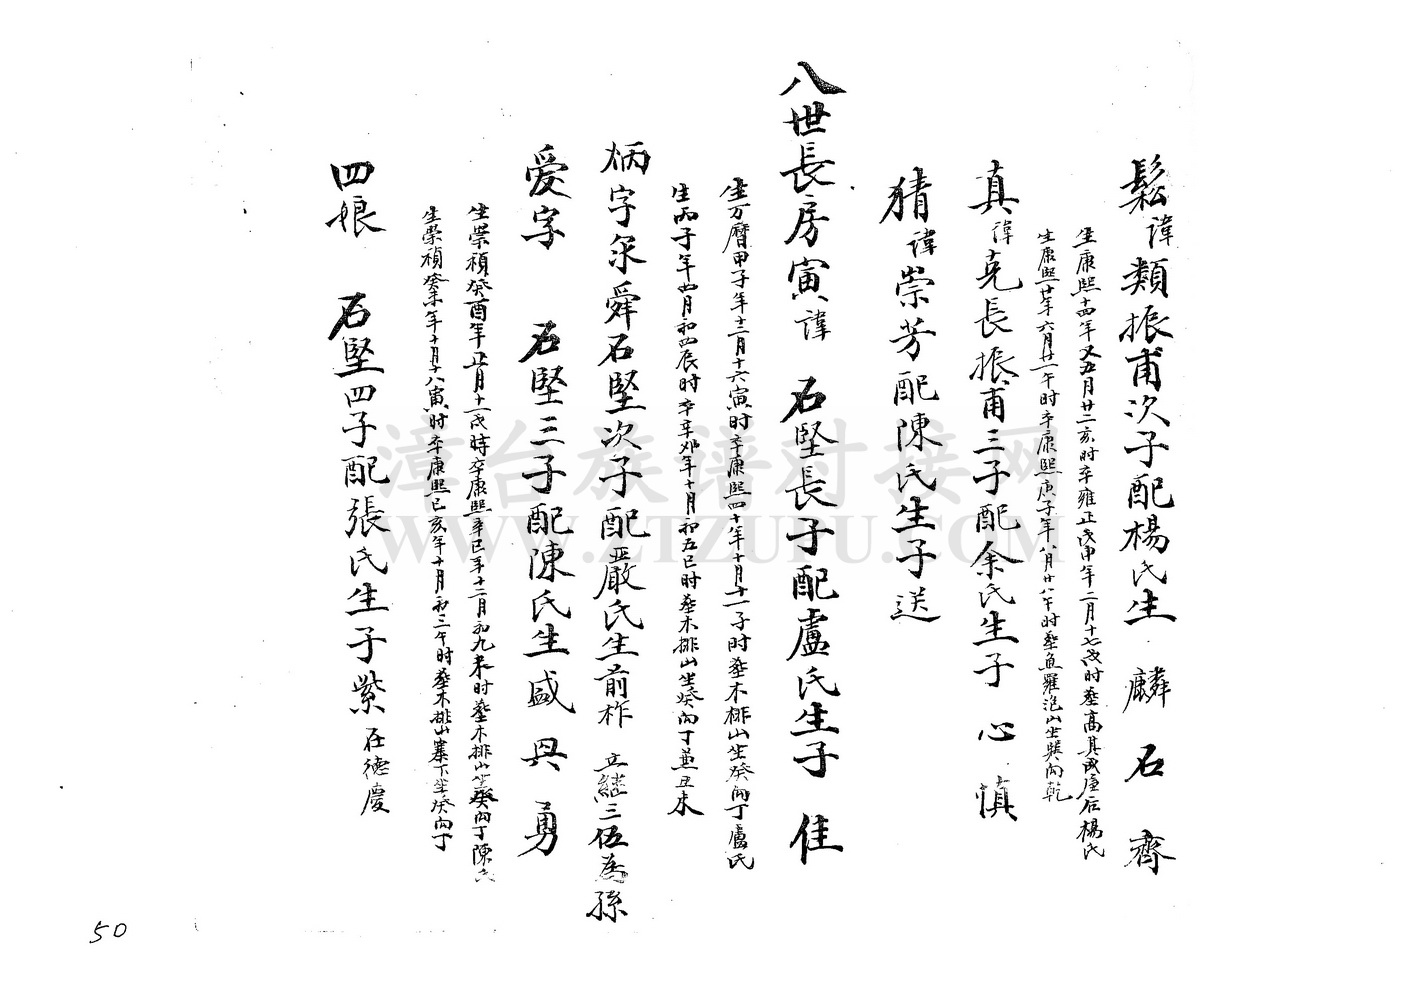 鬆諱類振甫次子配楊氏生 麟 石 齊
生康熙十四年又五月廿二亥时卒雍正戊申年二月十七戌时葬高其戍庵后楊氏
生康熙廿年六月廿一午时卒康熙庚子年八月廿八午时葬魚羅泡山坐巽向乾
真諱克長振甫三子配余氏生子 心 慎
猜諱崇芳配陳氏生子送
八世長房寅諱 石堅長子配盧氏生子 佳
生万曆甲子年十二月十六寅时卒康熙四十年十月十一子时葬木梆山坐癸向丁盧氏
生丙子年四月初四辰时卒辛夘年十月初五巳时葬木排山坐癸向丁兼丑未
炳字尔舜石堅次子配嚴氏生前柞 立繼三伍為孫
爱字 石堅三子配陳氏生盛 興 勇
生崇禎癸酉年正月十一戌時卒康熙辛巳年十二月初九未时葬木排山坐癸向丁陳氏
生崇禎癸未年十月十八寅时卒康熙己亥年十月初三午时葬木排山寨下坐癸向丁
四娘 石堅四子配張氏生子紫在德慶
漳台族谱对接网
WWW.ZTZUPU.COM
50